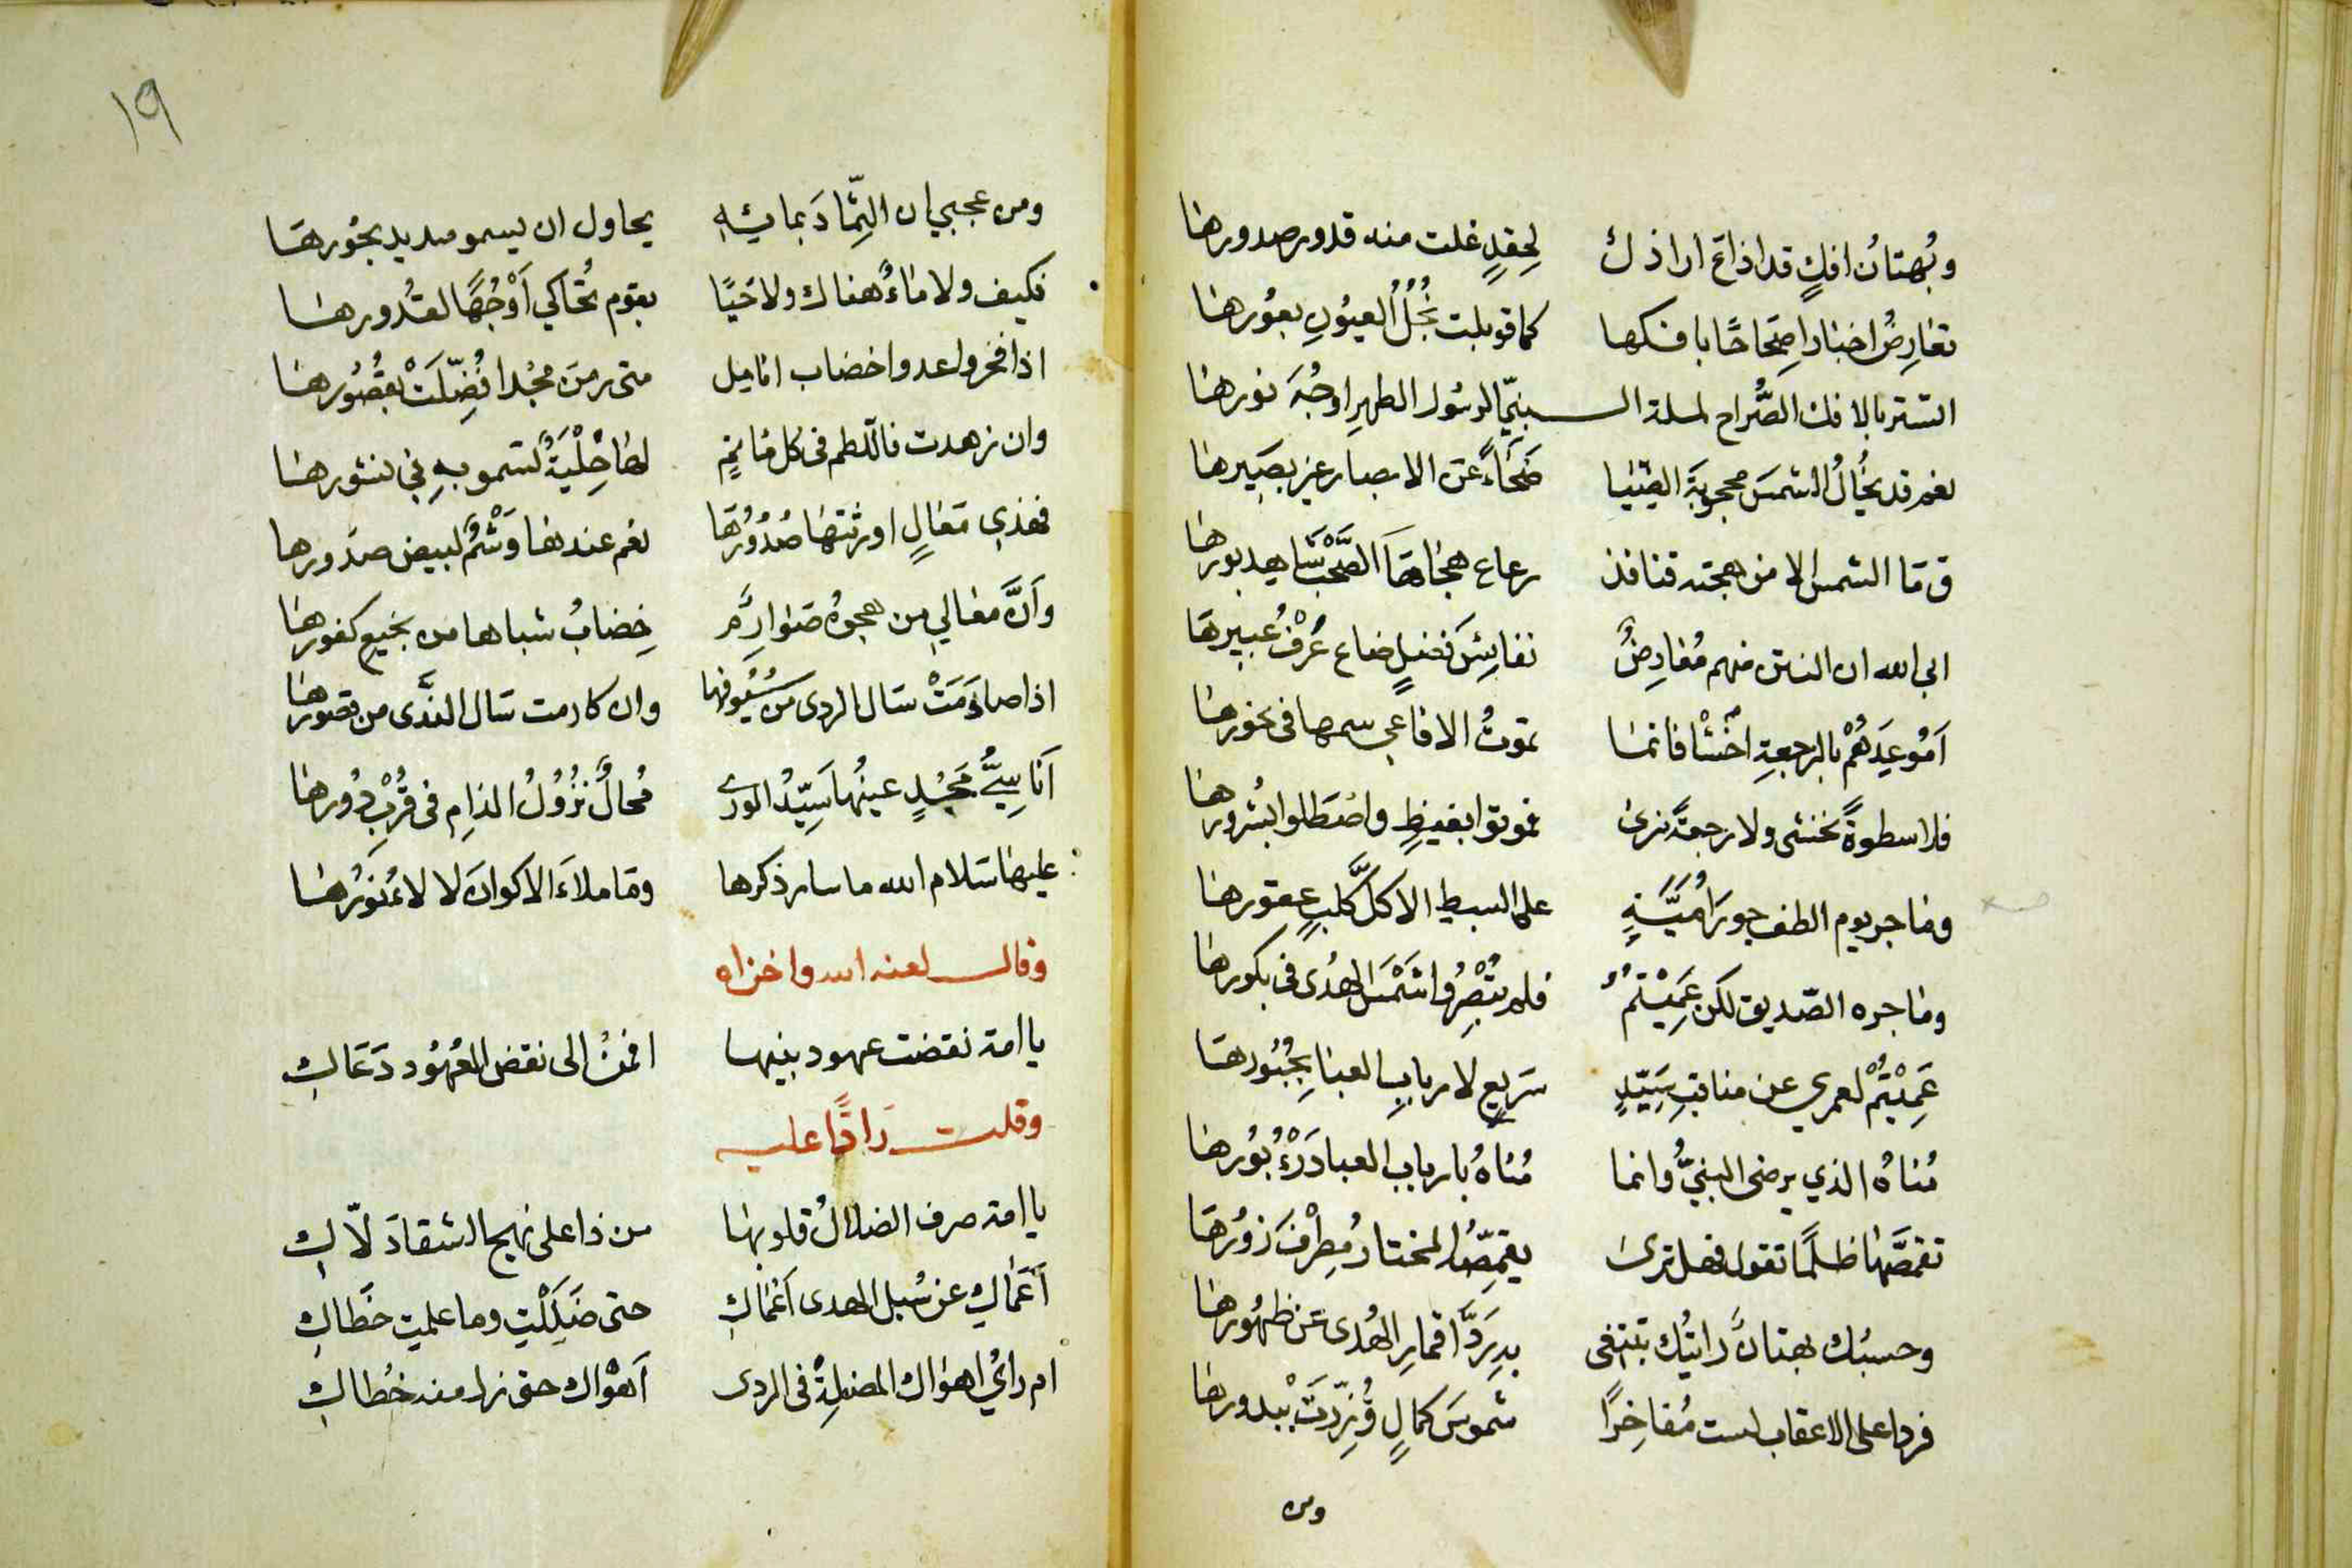 وبُهتانُ افكٍ قد اذاعَ اراذلٌ لحِقدٍ غلت منه قدور صدورها
تعارِضُ اخبارا صِحَاحًا بافكها كما قوبلت نُجُلُ العيُونِ بعوُرها
اتستر بالافك الصُّراح لملة النبيّ الرسُول الطهرِ اوجُهَ نورها
نعم قد يخُالُ الشمسَ محجوبَةَ الضِّيَا ضَحَاءً عَن الابصار غير بصَيِرها
وَمَا الشمس الا من هجته قنافذ رعاع هجَاهَا الصَّحْبُ شاهد بورها
ابى الله ان النتن منهم مُعَارِضٌ نفايِسَ فَضلٍ ضاع عَرْفُ عُبيرهَا
اَمُوعِدَهُمْ بالرجعةِ اخْسَأ فانما تموتُ الافاعي سمها في نحورها
فلا سطوةً نخشى ولا رجعةً نرى فموتوا بغيظٍ واصْطَلوا بشُرورها
وما جر يوم الطف جور اُمَيَّةٍ على السبط الا كلّ كلبٍ عقورها
وما جره الصّديق لكن عَمِيْتُمُ فلم تُبْصِرُوا شَمْسَ الهُدى في بكورها
عَمِيْتُمْ لعمري عن مناقبِ سَيّدٍ سَرِيعٍ لارباب العبَا بِحُبُورهَا
مُنَاهُ الذي يرضى النبيُّ وانما مُنَاهُ بارباب العبا دَرْءُ بُوُرها
تقمصَّهَا ظلمًا تقول فهل ترى يقمِصُّ المختار مُطِرْفَ زوُرهَا
وحسبُك بهتانٌ رايتُك تبتغى بهِ رَدَّ اقمارِ الهُدى عَن ظهُورها
فردا على الاعقاب لست مُفاخِرًا شموسَ كمالٍ قُوزِّرَتْ ببدورها
ومن
١٩
ومن عجبي ان الثِّمَادَ بمائِهِ يحاول ان يسمو مديد بحُورهَا
فكيف ولا مَاءٌ هناك ولا حَيًا بقوم تُحَاكي اَوْجُهًا لقدُورها
اذا فخروا عدوا خضاب انامل متى رمن مجُدا فُضّلَتْ بقصُوُرها
وان زهدت فاللطم فى كل مَاتمٍ لهَا حِلْيَةٌ تسمو بهِ في نشورها
فهذي مَعَالٍ اورثتهَا صُدُوُرُهَا نعم عندها وَشْمٌ لبيض صدورها
وَاَنَّ معالي من هجوهُ صَوَارِمٌ خِضابُ شباها من نجيع كفورها
اذا صادَمَتْ سَال الردى من سُيُوفها وان كارمت سَال النَّدى من قصورها
اَنَاسِيُّ مَجْدٍ عينُها سَيّدُ الورى مُحالٌ نزُوُلُ الذامِ فى قُرْبِ دُورها
عليها سَلام الله ما سار ذكرها ومَا ملأَ الاكوانَ لالاءُ نُوُرُها
وقال لعنه الله واخزاه
يا امة نقضت عهود بنيها افمنْ الى نقض العُهُود دَعَاكِ
وقلت رَادًّا عليه
يا امة صرف الضلالُ قلوبهَا من ذا على نهج الشقا دَلّاكِ
اَعَمَاكِ عن سُبل الهدى اَعْمَاكِ حتى ضَلِلْتِ وما علمتِ خَطَاكِ
ام رايُ اهوَاك المضلةِ فى الردى اَهوْاك حتى زل منه خُطاكِ